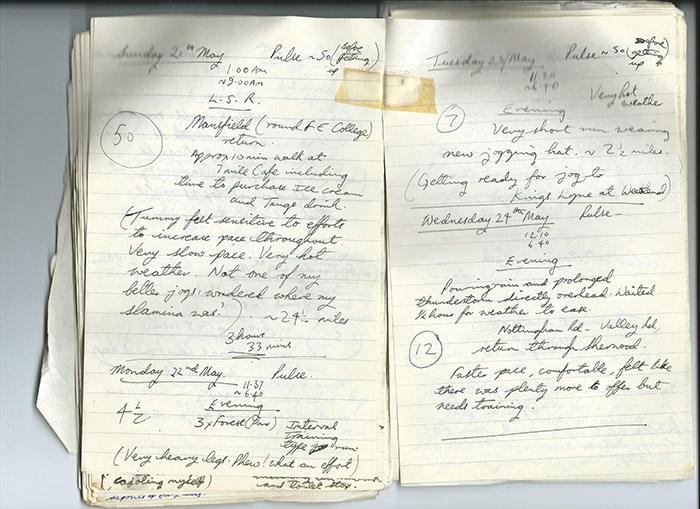 Sunday 21st May Pulse ~ 50 (before getting up)
1.00am
~9.00am
L.S.R.
50
Mansfield (round F E College)
return.
Approx 10 min walk at
7 mile Cafe including
time to purchase Ice cream
and Tango drink.
(Tummy felt sensitive to efforts
to increase pace throughout.
Very slow pace. Very hot
weather. Not one of my
better jogs: wondered where my
stamina was?) ~ 24 1/2 miles
3 hours
33 mins
Monday 22nd May. Pulse.
11.37
~ 6.40
4 1/2
Evening
3 x Forest (Par) Interval
training
type run
(Very heavy legs. Phew! what an effort)
cajoling myself)
and toilet stop.
Tuesday 23/May Pulse ~ 50 (before getting up)
11.30
~ 6.40
Evening Very hot
weather
7
Very short run wearing
new jogging hat. ~ 2 1/2 miles.
(Getting ready for jog to
Kings Lynne at Weekend)
Wednesday 24th May Pulse -
12.10
6.40
Evening
Pouring rain and prolonged
thunderstorm directly overhead. Waited
1/2 hours for weather to ease.
Nottingham Rd - Valley Rd,
12
return through Sherwood.
Faster pace, comfortable, felt like
there was plenty more to offer but
needs training.